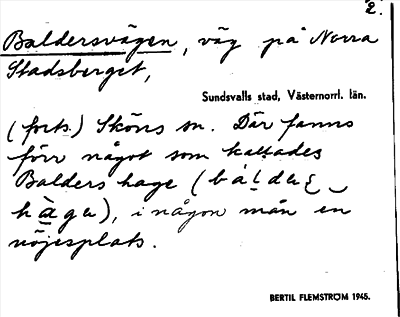 2.
Baldersvägen, väg på Norra
Stadsberget,
Sundsvalls stad, Västernorrl. län.
(forts.) Sköns sn. Där fanns
förr något som kallades
Balders hage
i någon mån en
nöjesplats.
BERTIL FLEMSTRÖM 1945.